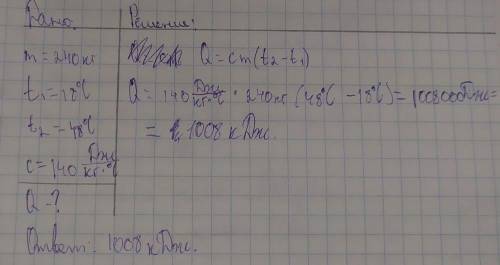 Дано:
Решение:
m = 240 кг
t₁ = 18°C
t₂ = 48°C
c = 140 Дж/кг·°C
Q - ?
Q = cm(t₂ - t₁)
Q = 140 Дж/кг·°C · 240 кг (48°C - 18°C) = 1008000 Дж =
= 1008 кДж.
Ответ: 1008 кДж.